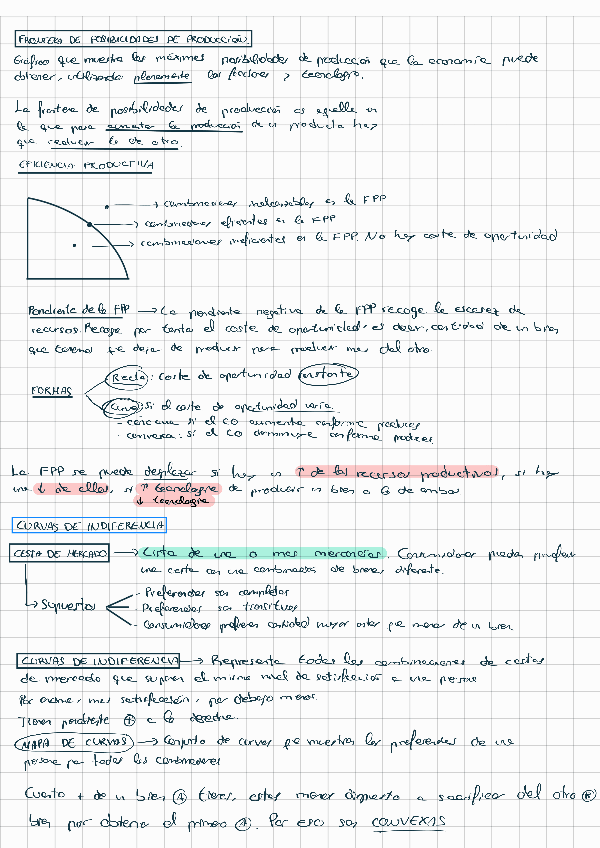 FRONTERA DE POSIBILIDADES DE PRODUCCIÓN
Gráfico que muestra las máximas posibilidades de producción que la economía puede
obtener, utilizando plenamente los factores y tecnología.
La frontera de posibilidades de producción es aquella en
la que para aumentar la producción de un producto hay
que reducir la de otro.
EFICIENCIA PRODUCTIVA
→ combinaciones inalcanzables en la FPP
→ combinaciones eficientes en la FPP
→ combinaciones ineficientes en la FPP. No hay coste de oportunidad
Pendiente de la FPP → La pendiente negativa de la FPP recoge la escasez de
recursos. Recoge por tanto el coste de oportunidad, es decir, cantidad de un bien
que tenemos que dejar de producir para producir mas del otro.
FORMAS
Recta: coste de oportunidad constante
Curva: si el coste de oportunidad varía.
- concava si el CO aumenta conforme produces
- convexa: si el CO disminuye conforme produces
La FPP se puede desplazar si hay un ↑ de los recursos productivos, si hay
una ↓ de ellos, si ↑ tecnologia de producir un bien o G de ambos
↓ tecnologia
CURVAS DE INDIFERENCIA
CESTA DE MERCADO → Lista de una o mas mercancías. Consumidores pueden preferir
una cesta con una combinación de bienes diferente.
→ Supuestos
- Preferencias son completas
- Preferencias son transitivas
- Consumidores prefieren cantidad mayor antes que menor de un bien
CURVAS DE INDIFERENCIA → Representa todas las combinaciones de cestas
de mercado que suponen el mismo nivel de satisfacción a una persona
Por encima, mas satisfacción, por debajo menos.
Tienen pendiente ⊕ a la derecha.
MAPA DE CURVAS → Conjunto de curvas que muestran las preferencias de una
persona por todas las combinaciones
Cuanto + de un bien Ⓐ tienes, estas menos dispuesto a sacrificar del otro Ⓑ
bien por obtener el primero Ⓐ. Por eso son CONVEXAS